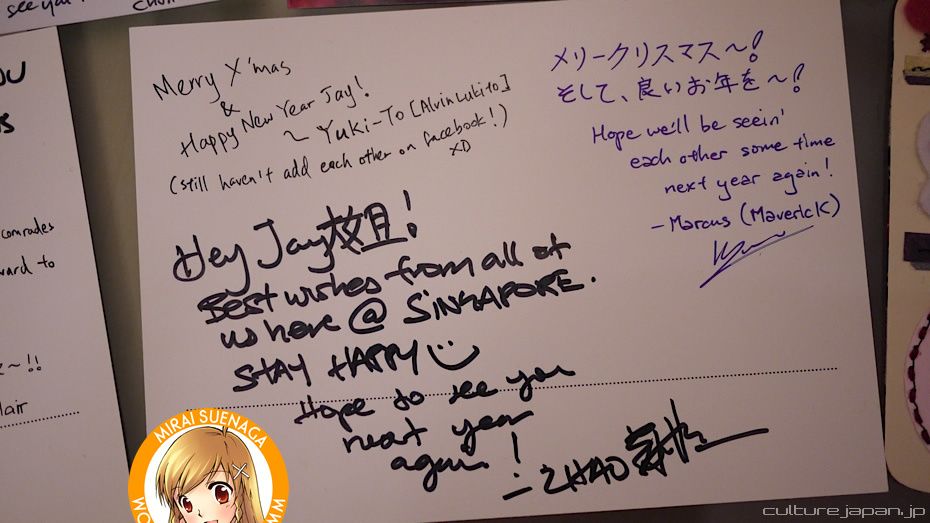 see you
OU
comrades
ward to
~!!
lair
Merry X'mas
&
Happy New Year Jay!
~ Yuki-To [Alvin Lukito]
(still haven't add each other on facebook!)
XD
メリークリスマス〜!
そして、良いお年を〜!
Hope we'll be seein'
each other some time
next year again!
- Marcus (MavericK)
Hey Jay姐!
Best wishes from all of
us here @ SiNGAPORE.
STAY HAPPY
Hope to see you
next year
again!
- ZHAO
MIRAI SUENAGA
culturejapan.jp